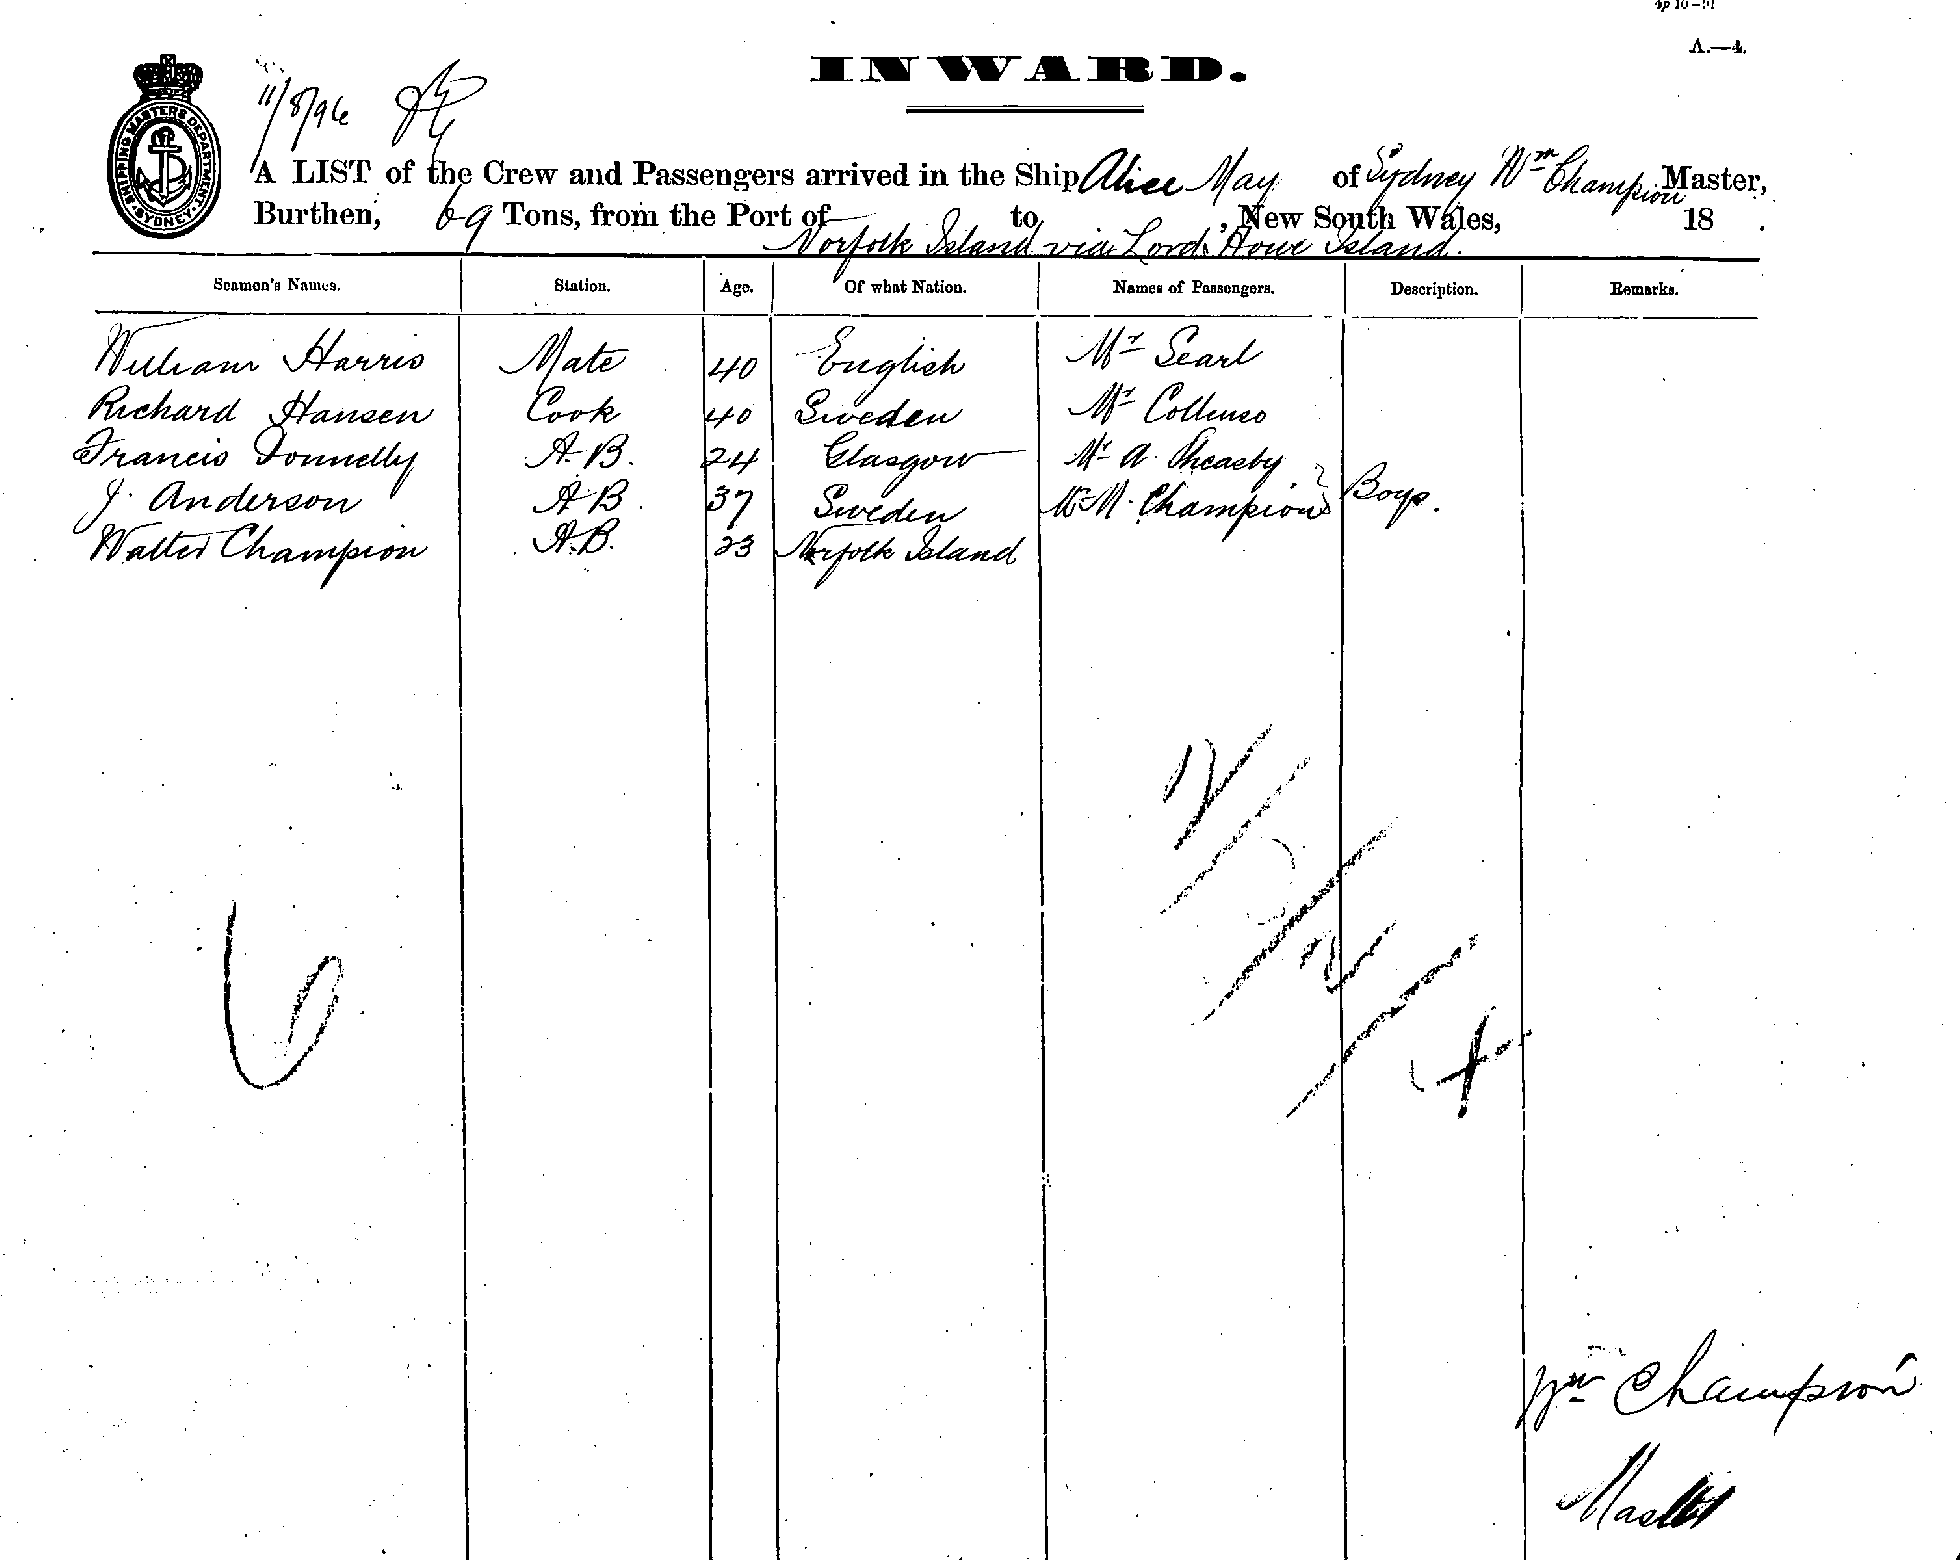 A.—4.
INWARD.
SHIPPING MASTERS DEPARTMENT
SYDNEY
11/8/96
A LIST of the Crew and Passengers arrived in the Ship Alice May of Sydney Wm Champion Master,
Burthen, 69 Tons, from the Port of to , New South Wales, 18 .
Norfolk Island via Lord Howe Island.
Seamen's Names. Station. Age. Of what Nation. Names of Passengers. Description. Remarks.
William Harris Mate 40 English Mr Searl
Richard Hansen Cook 40 Sweden Mr Collenso
Francis Donnelly A.B. 24 Glasgow Mr A. Sheasby
J. Anderson A B. 37 Sweden Mr M. Champion Boys.
Walter Champion A.B. 23 Norfolk Island
2
2
6
4
Wm Champion
Master